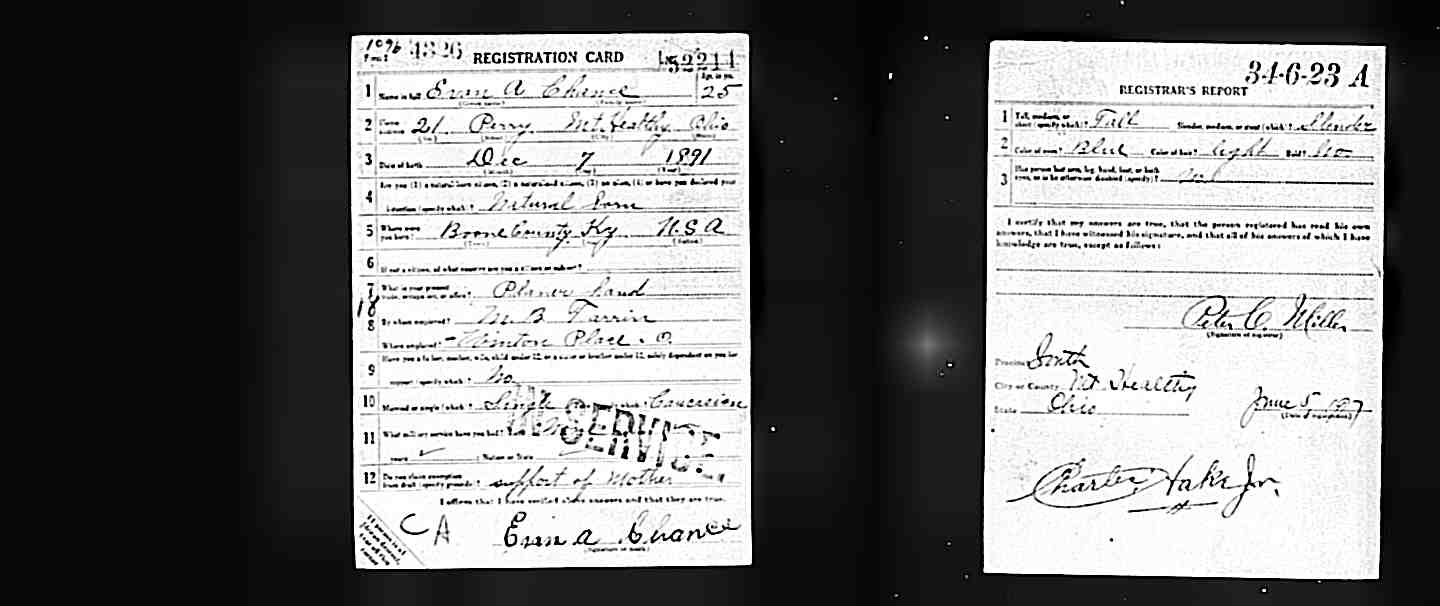 1096 4326 REGISTRATION CARD No 52211
Form 1 Age, in yrs.
1 Name in full Evan A Chance 25
(Given name) (Family name)
2 Home address 21 Perry Mt. Healthy Ohio
(No.) (Street) (City) (State)
3 Date of birth Dec 7 1891
(Month) (Day) (Year)
4 Are you (1) a natural-born citizen, (2) a naturalized citizen, (3) an alien, (4) or have you declared your
intention (specify which)? Natural born
5 Where were you born? Boone County Ky U.S A
(Town) (State) (Nation)
6 If not a citizen, of what country are you a citizen or subject?
7 What is your present trade, occupation, or office? Planer hand
18
8 By whom employed? M.B.
Where employed? Winton Place. O.
9 Have you a father, mother, wife, child under 12, or a sister or brother under 12, solely dependent on you for
support (specify which)? No
10 Married or single (which)? Single Race (specify which)? Caucasian
IN SERVICE
11 What military service have you had? Rank
years ; Nation or State
12 Do you claim exemption from draft (specify grounds)? support of Mother
I affirm that I have verified above answers and that they are true.
C A Evan A Chance
(Signature or mark)
34-6-23 A
REGISTRAR'S REPORT
1 Tall, medium, or short (specify which)? Tall Slender, medium, or stout (which)? Slender
2 Color of eyes? Blue Color of hair? light Bald? No
3 Has person lost arm, leg, hand, foot, or both
eyes, or is he otherwise disabled (specify)? No
I certify that my answers are true, that the person registered has read his own
answers, that I have witnessed his signature, and that all of his answers of which I have
knowledge are true, except as follows:
Peter C. Miller
(Signature of registrar)
Precinct South
City or County Mt Healthy
State Ohio June 5 1917
(Date of registration)
Charles Hake Jr.